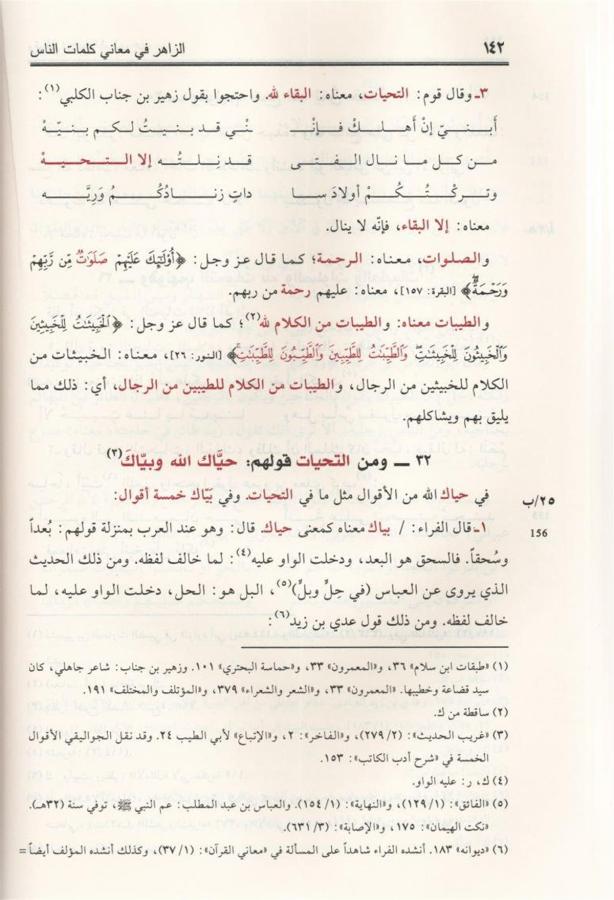 ١٤٢ الزاهر في معاني كلمات الناس
٣ـ وقال قوم: التحيات، معناه: البقاء لله. واحتجوا بقول زهير بن جناب الكلبي(١):
أَبـنـيَّ إنْ أهـلـك فـإنّـ ـنُي قد بـنـيـتُ لـكـم بـنـيّـهْ
مـن كـل مـا نـال الـفـتـى قـد نـلـتُـه إلا الـتـحـيـهْ
وتـركـتُـكُـمْ أولادَ سـا داتٍ زنـادُكُـمُ وَرِيَّـه
معناه: إلا البقاء، فإنّه لا ينال.
والصلوات، معناه: الرحمة؛ كما قال عز وجل: ﴿أُوْلَٰٓئِكَ عَلَيۡهِمۡ صَلَوَٰتٞ مِّن رَّبِّهِمۡ
وَرَحۡمَةٞۖ﴾ [البقرة: ١٥٧]، معناه: عليهم رحمة من ربهم.
والطيبات معناه: والطيبات من الكلام لله(٢)؛ كما قال عز وجل: ﴿ٱلۡخَبِيثَٰتُ لِلۡخَبِيثِينَ
وَٱلۡخَبِيثُونَ لِلۡخَبِيثَٰتِۖ وَٱلطَّيِّبَٰتُ لِلطَّيِّبِينَ وَٱلطَّيِّبُونَ لِلطَّيِّبَٰتِۚ﴾ [النور: ٢٦]، معناه: الخبيثات من
الكلام للخبيثين من الرجال، والطيبات من الكلام للطيبين من الرجال، أي: ذلك مما
يليق بهم ويشاكلهم.
٣٢ ــ ومن التحيات قولهم: حيَّاك الله وبيّاكَ(٣)
في حياك الله من الأقوال مثل ما في التحيات. وفي بَيّاك خمسة أقوال: ٢٥/ب
١ـ قال الفراء: / بياك معناه كمعنى حياك. قال: وهو عند العرب بمنزلة قولهم: بُعداً 156
وسُحقاً. فالسحق هو البعد، ودخلت الواو عليه(٤): لما خالف لفظه. ومن ذلك الحديث
الذي يروى عن العباس (في حِلٍّ وبلّ)(٥)، البل هو: الحل، دخلت الواو عليه، لما
خالف لفظه. ومن ذلك قول عدي بن زيد(٦):
(١) «طبقات ابن سلام» ٣٦، و«المعمرون» ٣٣، و«حماسة البحتري» ١٠١. وزهير بن جناب: شاعر جاهلي، كان
سيد قضاعة وخطيبها. «المعمرون» ٣٣، و«الشعر والشعراء» ٣٧٩، و«المؤتلف والمختلف» ١٩١.
(٢) ساقطة من ك.
(٣) «غريب الحديث»: (٢/ ٢٧٩)، و«الفاخر»: ٢، و«الإتباع» لأبي الطيب ٢٤. وقد نقل الجواليقي الأقوال
الخمسة في «شرح أدب الكاتب»: ١٥٣.
(٤) ك، ر: عليه الواو.
(٥) «الفائق»: (١/ ١٢٩)، و«النهاية»: (١/ ١٥٤). والعباس بن عبد المطلب: عم النبي ﷺ، توفي سنة (٣٢هـ).
«نكت الهيمان»: ١٧٥، و«الإصابة»: (٣/ ٦٣١).
(٦) «ديوانه» ١٨٣. أنشده الفراء شاهداً على المسألة في «معاني القرآن»: (١/ ٣٧)، وكذلك أنشده المؤلف أيضاً =